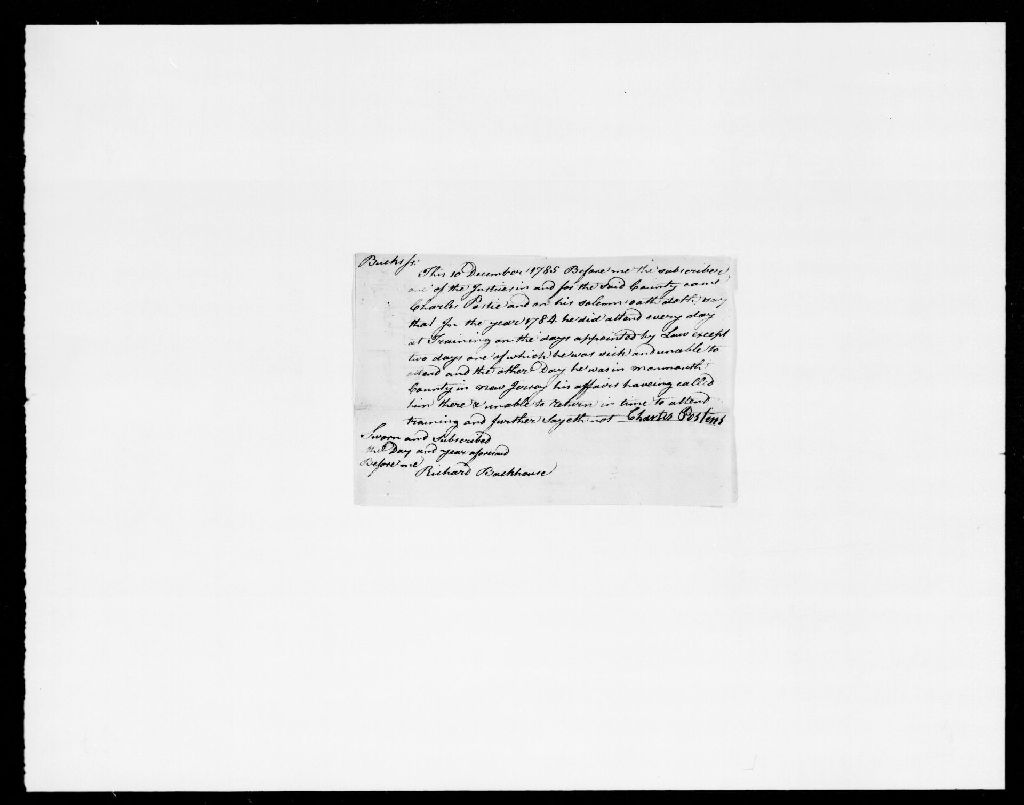 Bucks ss.
This 10 December 1785 Before me the subscriber,
one of the Justices in and for the Said County came
Charles Postie and on his solemn oath doth say
that for the year 1784 he did attend every day
at Training on the days appointed by Law except
two days one of which he was sick and unable to
attend and the other Day he was in monmouth
County in new Jersey his affairs haveing call'd
him there & unable to return in time to attend
training and further Sayeth not Charles Postens
Sworn and Subscribed
the Day and year aforesaid
Before me
Richard Backhouse